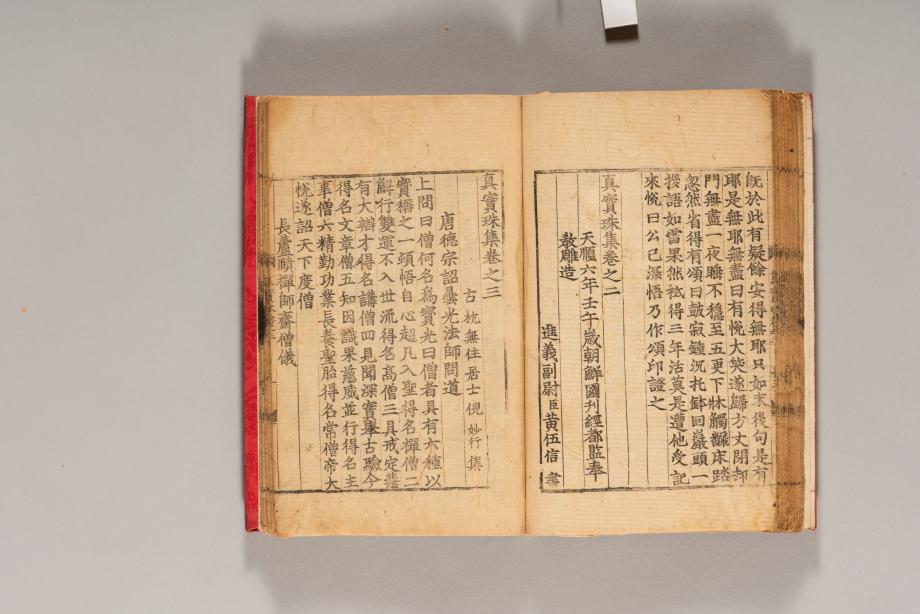 旣於此有疑餘安得無耶只如末後句是有
耶是無耶無盡曰有悅大笑遂歸方丈閉却
門無盡一夜睡不穩至五更下牀觸飜床踏
忽然省得有頌曰鼓寂鍾沉托鉢回巖頭一
拶語如雷果然秪得三年活莫是遭他受記
來悅曰公已深悟乃作頌印證之
真實珠集卷之二
天順六年壬午歲朝鮮國刊經都監奉
敎雕造
進義副尉臣黃伍信 書
真實珠集卷之三
古杭無住居士 倪 妙行 集
唐德宗詔曇光法師問道
上問曰僧何名爲寶光曰僧者具有六種以
寶稱之一頓悟自心超凡入聖得名禪僧二
解行雙運不入世流得名高僧三具戒定慧
有大辯才得名講僧四見聞深實擧古驗今
得名文章僧五知因識果慈威並行得名主
事僧六精勤功業長養聖胎得名常僧帝大
悅遂詔天下度僧
長蘆賾禪師齋僧儀